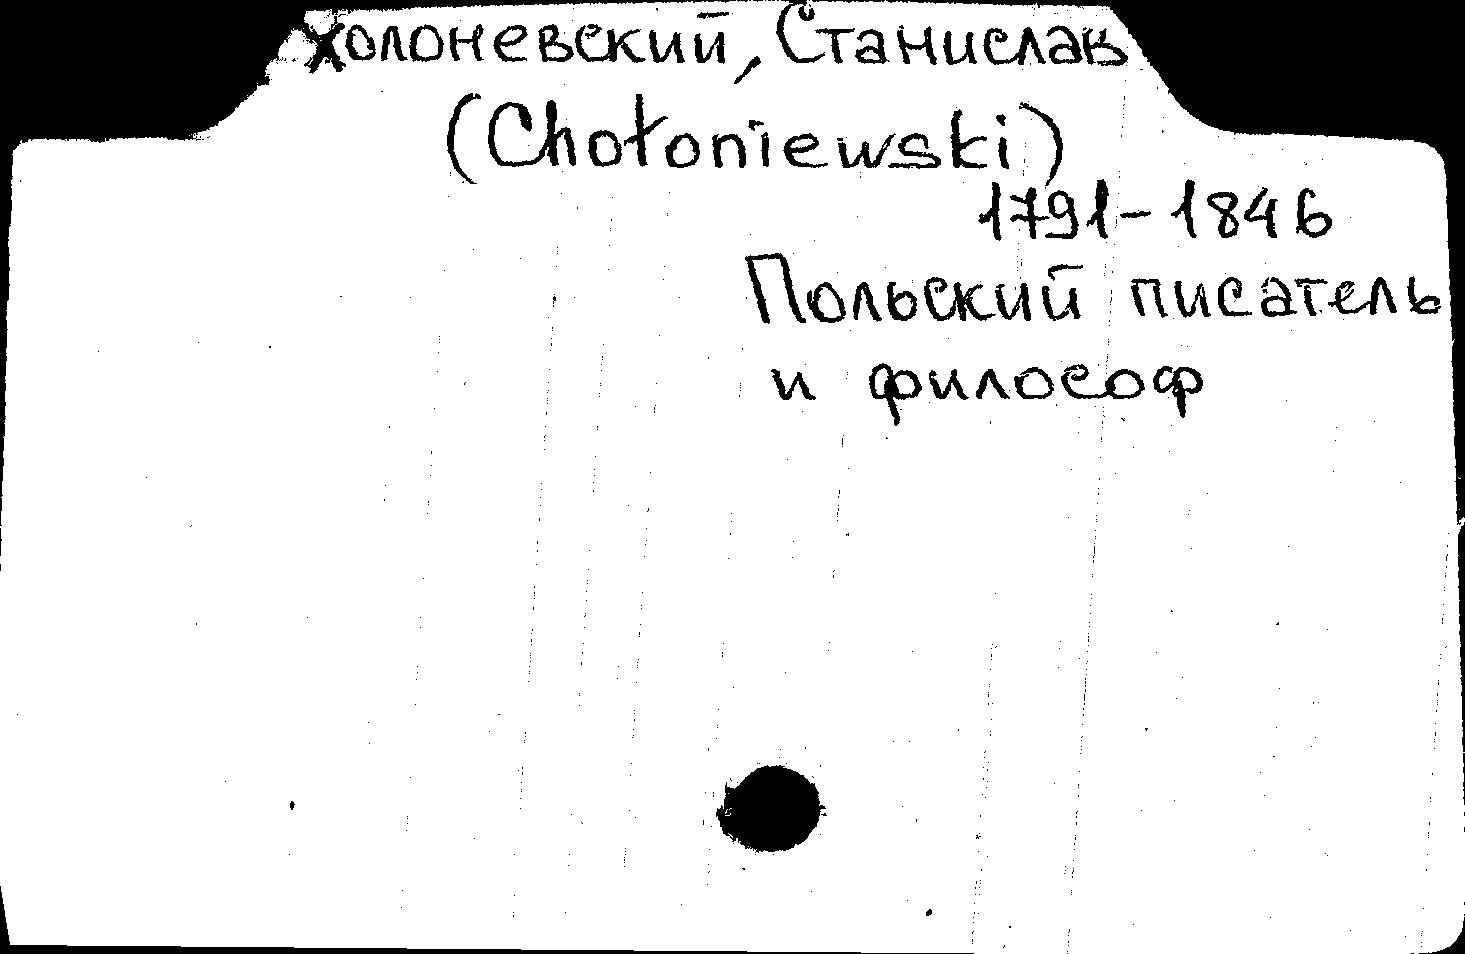 Холоневский, Станислав
(Chołoniewski)
1791-1846
Польский писатель
и философ